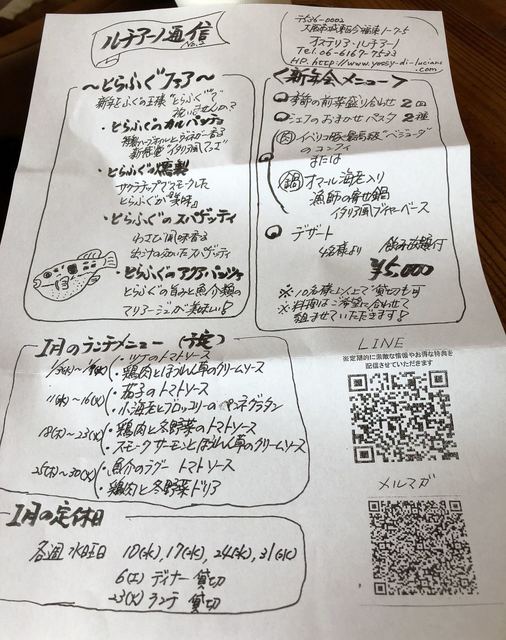 ルチアーノ通信
No.5
〒536-0002
大阪市城東区今福東1-7-5
オステリア・ルチアーノ
Tel.06-6167-7533
HP. http://www.yossy-di-luciano
.com
～とらふぐフェア～
新年をふぐの王様"とらふぐ"で
祝いませんか？
・とらふぐのカルパッチョ
新感覚"イタリア風てっさ"
・とらふぐの燻製
サクラチップでスモークした
とらふぐが"美味"
・とらふぐのスパゲッティ
わさび風味香る
出汁の効いたスパゲッティ
・とらふぐのアクアパッツァ
とらふぐの旨みと魚介類の
マリアージュが美味しい！
＜新年会メニュー＞
季節の前菜盛り合わせ 2皿
シェフのおまかせパスタ 2種
肉 イベリコ豚最高級"ベジョータ"
のコンフィ
または
鍋 オマール海老入り
漁師の寄せ鍋
イタリア風ブイヤベース
デザート
4名様より 飲み放題付
¥5,000
※10名様以上で貸切も可
※料理はご希望に合わせて
組ませていただきます！
1月のランチメニュー（予定）
・ツナのトマトソース
・鶏肉とほうれん草のクリームソース
11(木)～16(火) ・茄子のトマトソース
・小海老とブロッコリーのペンネグラタン
18(木)～23(火) ・鶏肉と冬野菜のトマトソース
・スモークサーモンとほうれん草のクリームソース
25(木)～30(火) ・魚介のラグー トマトソース
・鶏肉と冬野菜ドリア
LINE
※定期的に素敵な情報やお得な特典を
配信させていただきます
メルマガ
1月の定休日
各週 水曜日 10(水), 17(水), 24(水), 31(水)
6(土) ディナー 貸切
23(火) ランチ 貸切